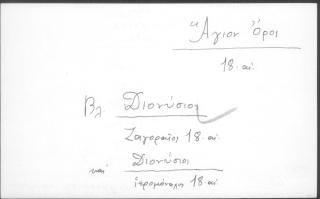 Ἅγιον Ὄρος
18. αἰ.
Βλ. Διονύσιος
Ζαγοραῖος 18. αἰ.
καὶ Διονύσιος
ἱερομόναχος 18. αἰ.